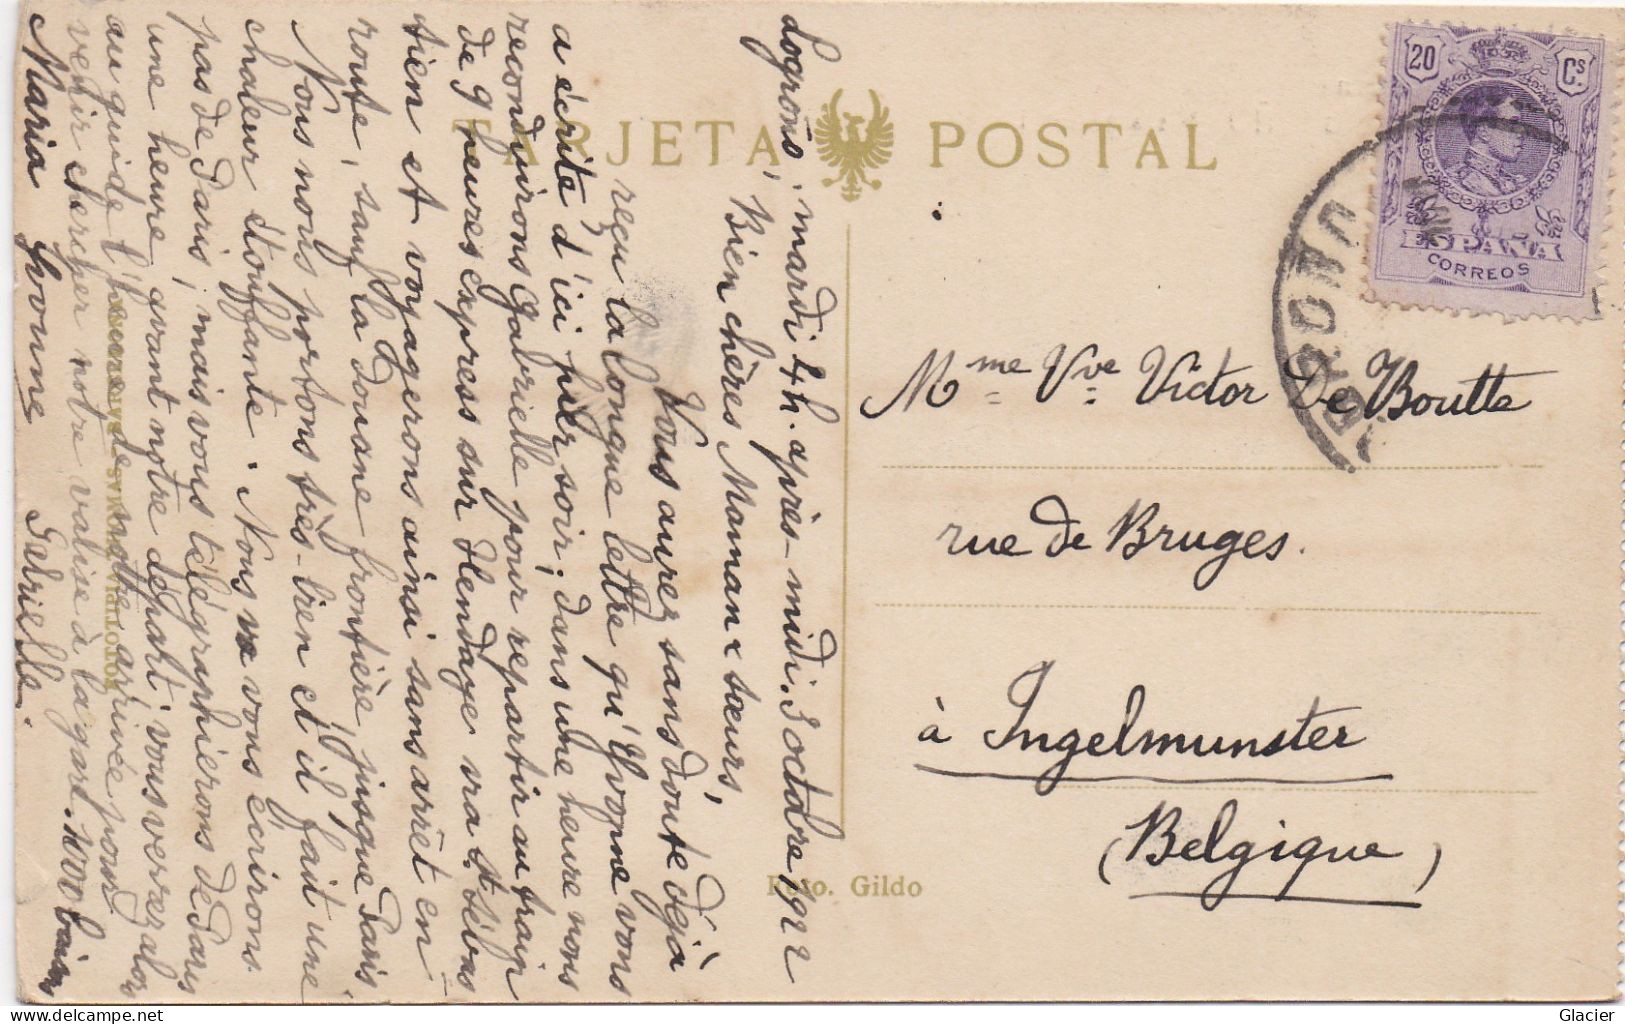 TARJETA POSTAL
20 Cs
ESPAÑA
CORREOS
Logroño, mardi 4h. après-midi. 3 octobre 1922
Bien chères Maman & sœurs,
Vous aurez sans doute déjà
reçu la longue lettre qu'Yvonne vous
a écrite d'ici hier soir; dans une heure nous
reconduirons Gabrielle pour repartir au train
de 9 heures express sur Hendaye via St. Sébas
tien et voyagerons ainsi sans arrêt en
route, sauf la douane frontière, jusque Paris
Nous nous portons très-bien et il fait une
chaleur étouffante. Nous vous écrirons
pas de Paris, mais vous télégraphierons de Paris
une heure avant notre départ; vous verrez alors
au guide l'heure de notre arrivée pour
venir chercher notre valise à la gare.
Maria Yvonne Gabrielle.
Foto. Gildo
Mme Vve Victor De Boutte
rue de Bruges.
à Ingelmunster
(Belgique)
Glacier